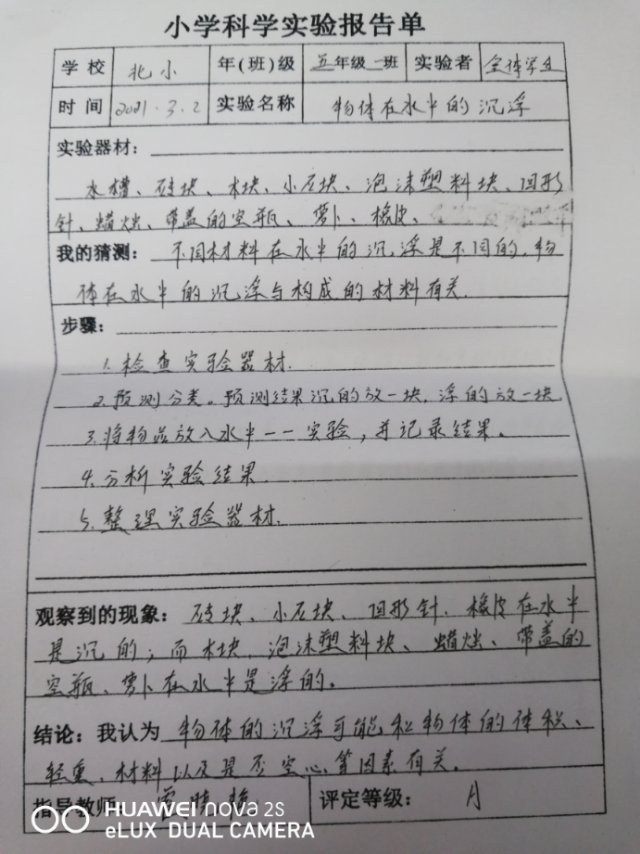 小学科学实验报告单
学校 北小 年(班)级 五年级一班 实验者 全体学生
时间 2021.3.2 实验名称 物体在水中的沉浮
实验器材:
水槽、砖块、木块、小石块、泡沫塑料块、回形
针、蜡烛、带盖的空瓶、萝卜、橡皮、
我的猜测: 不同材料在水中的沉浮是不同的,物
体在水中的沉浮与构成的材料有关.
步骤:
1.检查实验器材.
2.预测分类。预测结果沉的放一块,浮的放一块.
3.将物品放入水中一一实验,并记录结果。
4.分析实验结果.
5.整理实验器材.
观察到的现象: 砖块、小石块、回形针、橡皮在水中
是沉的;而木块、泡沫塑料块、蜡烛、带盖的
空瓶、萝卜在水中是浮的。
结论:我认为 物体的沉浮可能和物体的体积、
轻重、材料以及是否空心等因素有关。
指导教师: 评定等级: A
HUAWEI nova 2S
eLUX DUAL CAMERA